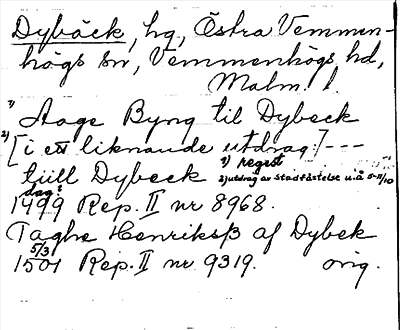 Dybäck, hg, Östra Vemmen-
högs sn, Vemmenhögs hd,
Malm. l.
1) Aage Byng til Dybeck
2) [i ett liknande utdrag:] ---
1) regest
tiill Dybeck 2) utdrag av stadfästelse u.å 5-11/10
dag?
1499 Rep. II nr 8968.
Taghe Henrikss af Dybek
5/3
1501 Rep. II nr 9319. orig.